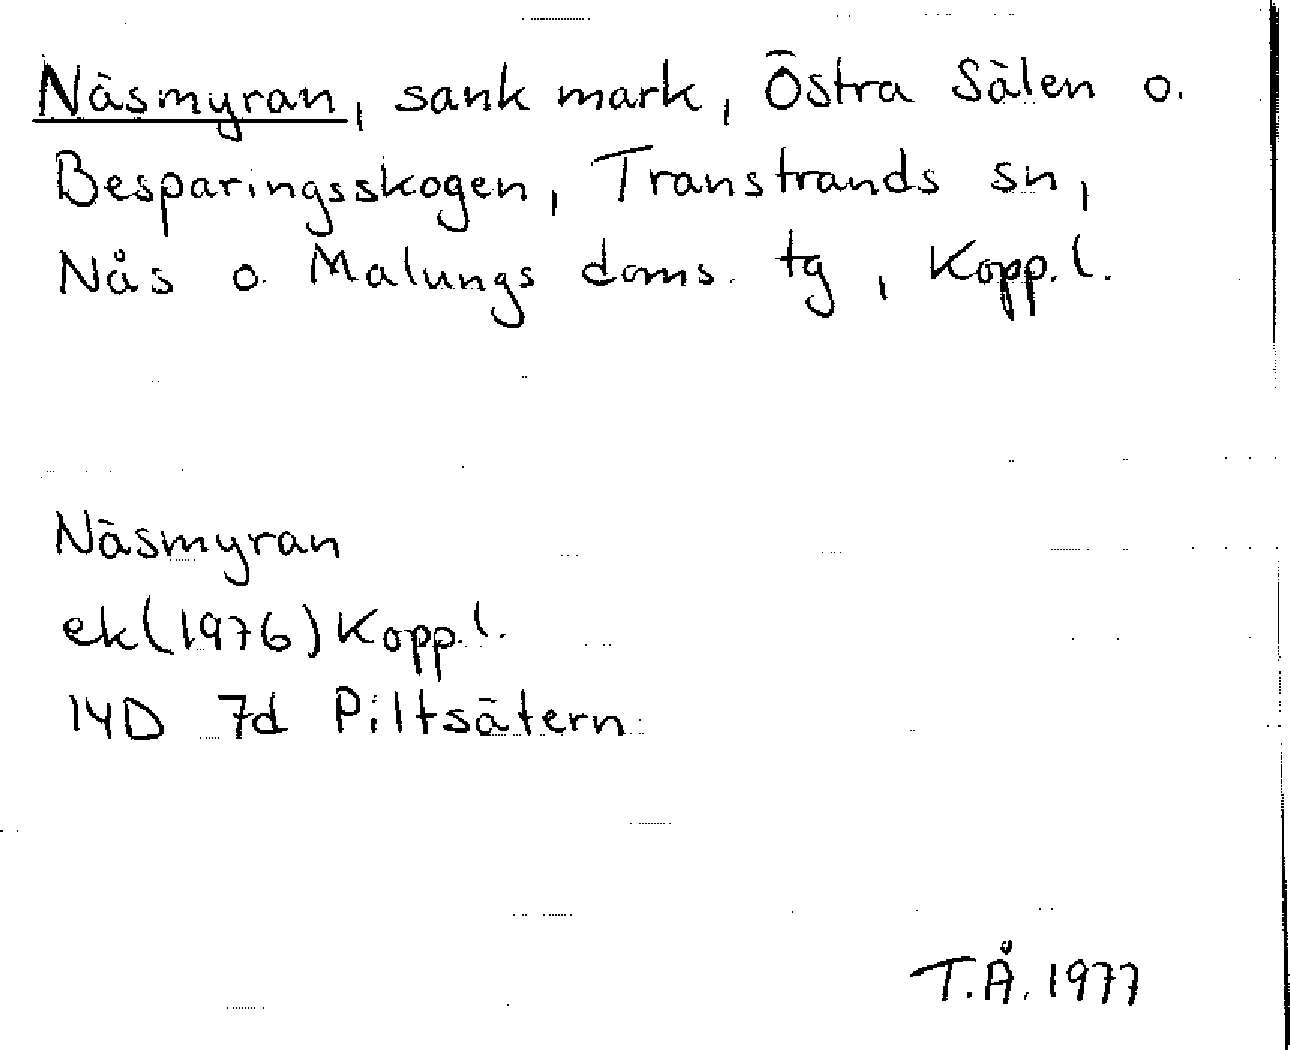 Näsmyran, sank mark, Östra Sälen o.
Besparingsskogen, Transtrands sn,
Nås o. Malungs doms. tg, Kopp.l.
Näsmyran
ek(1976) Kopp.l.
14D 7d Piltsätern
T.Å. 1977